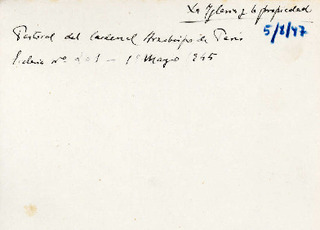 La Iglesia y la propiedad
5/8/47
Pastoral del Cardenal Arzobispo de París
nº 201 - 1º Mayo 945